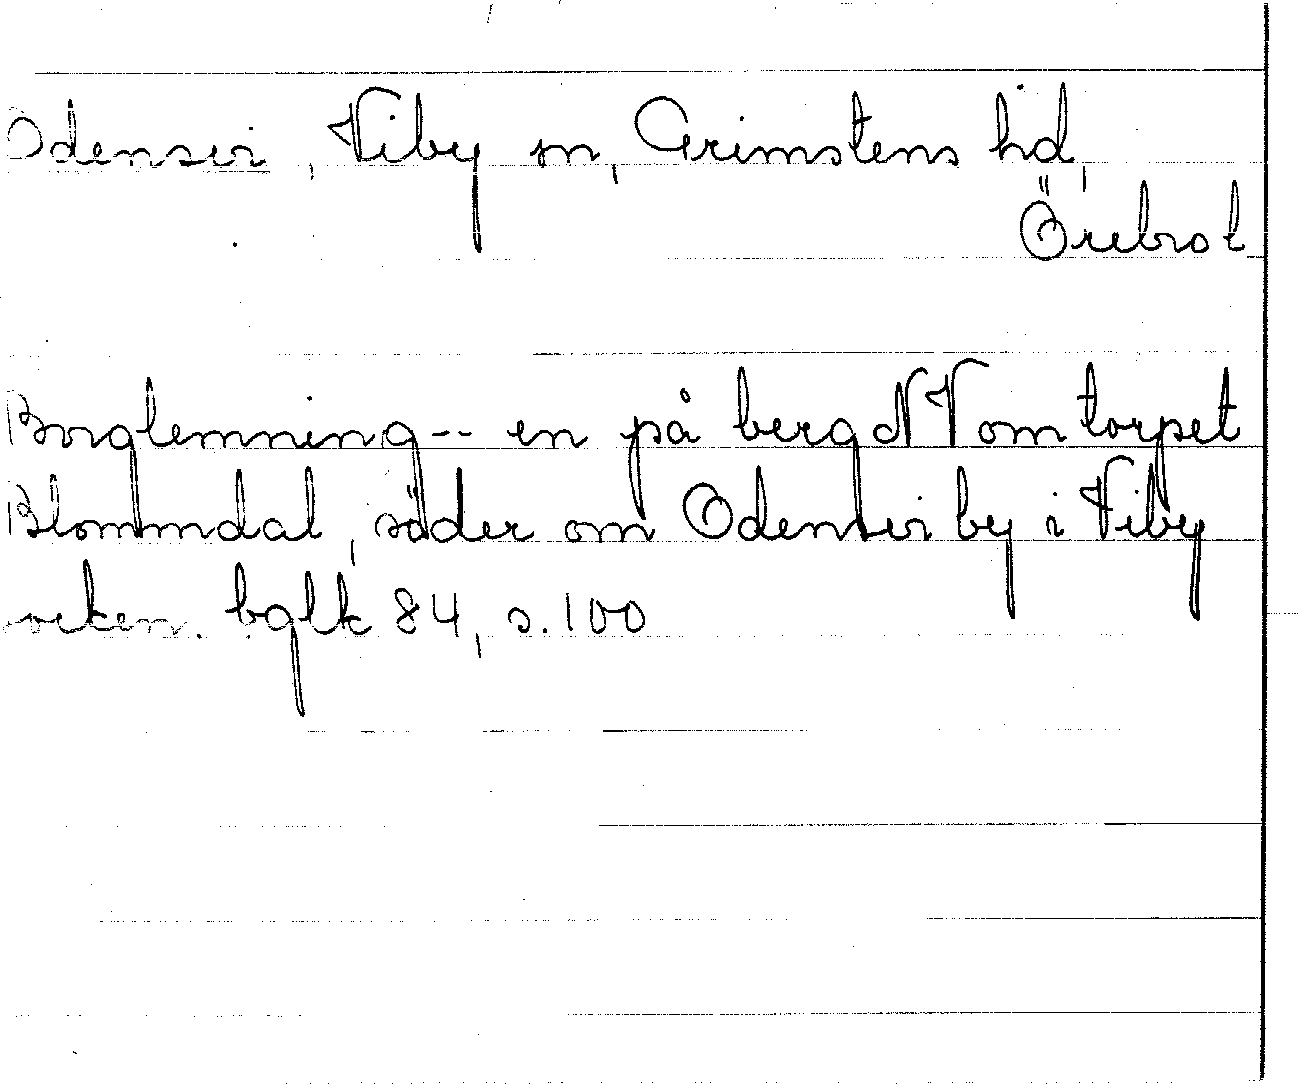 Odensvi, Viby sn, Grimstens hd,
Örebro l
Borglemning-- en på berg NV om torpet
Blommdal, söder om Odensvi by i Viby
socken. bglk 84, s. 100